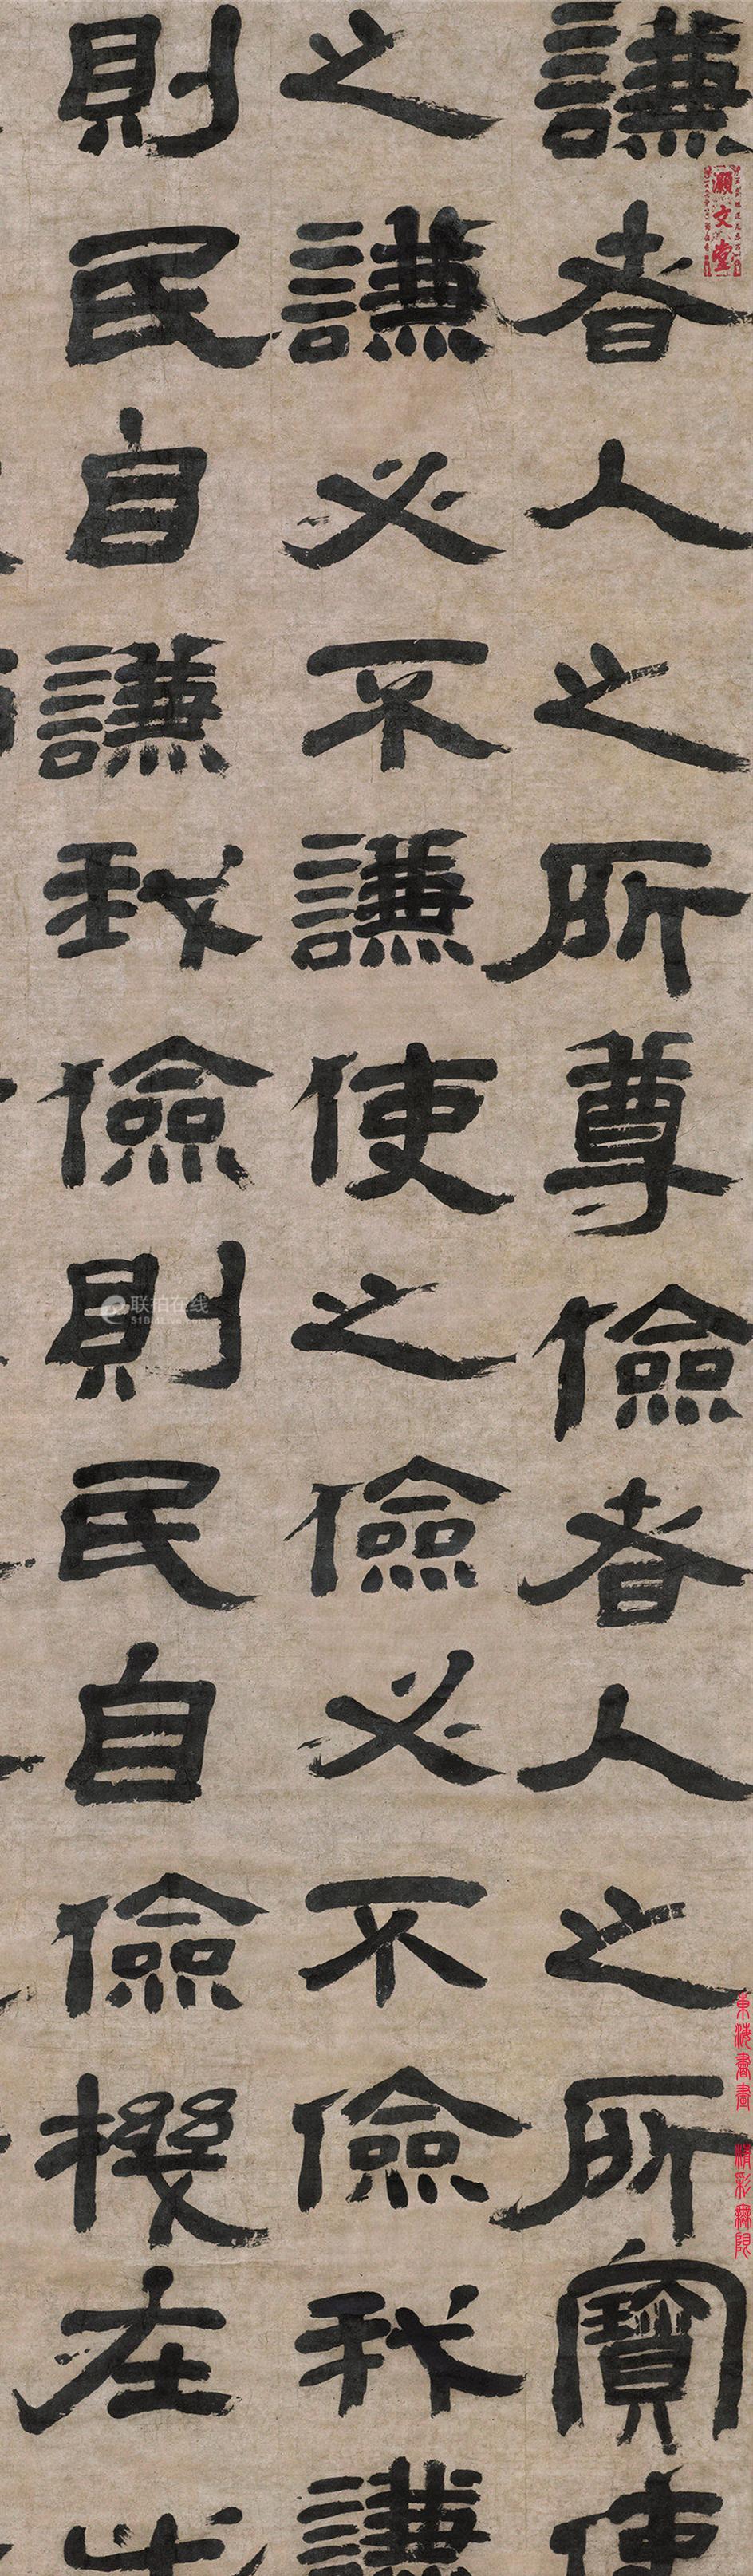 謙者人之所尊儉者人之所寶使
之謙必不謙使之儉必不儉我謙
則民自謙我儉則民自儉機在此
灝文堂
東海書畫 精彩無限
联拍在线
51BidLive.com